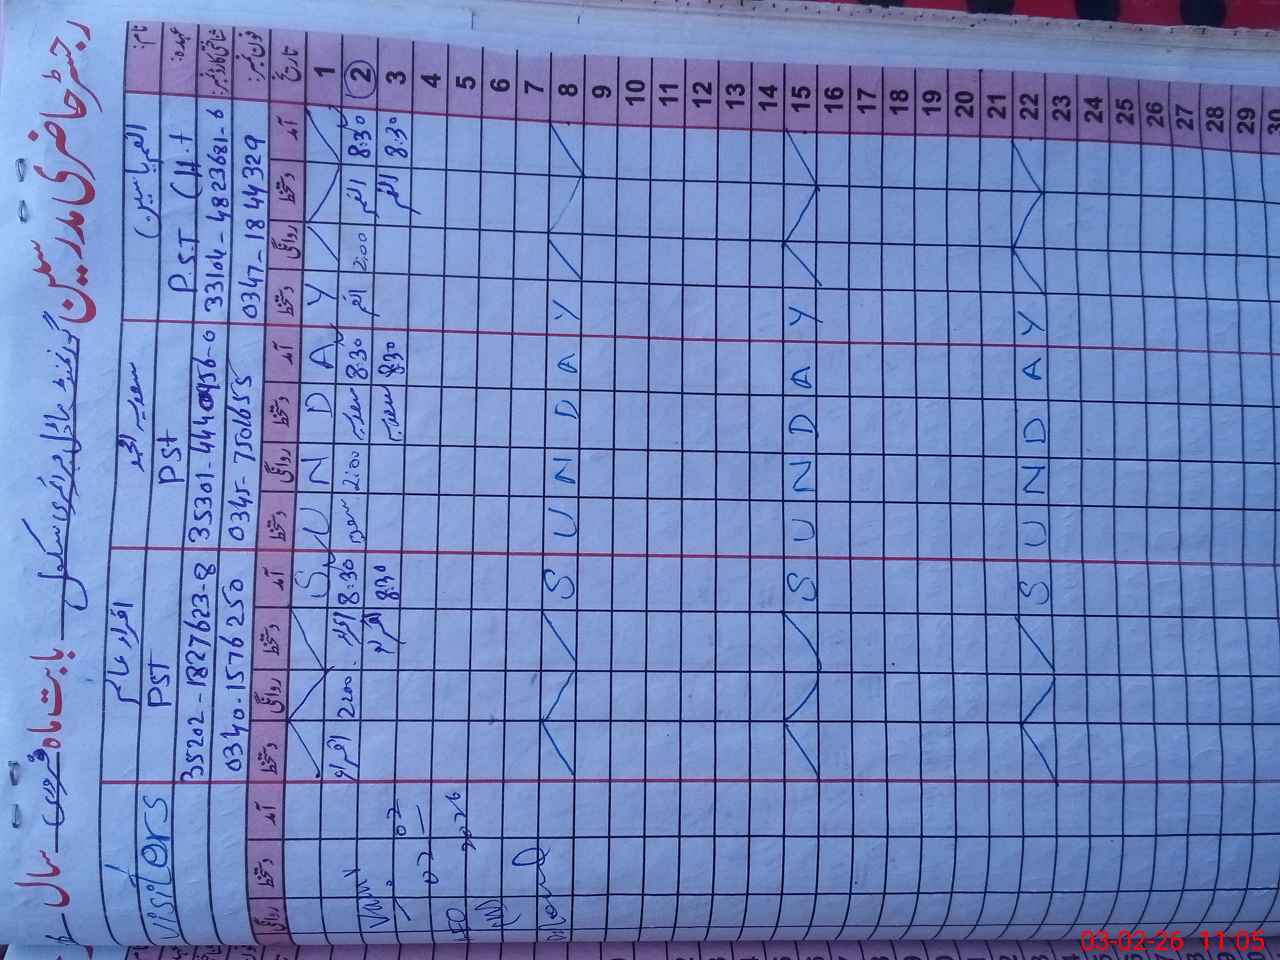 رجسٹر حاضری مدرسین گورنمنٹ ماڈل پرائمری سکول بابت ماہ فروری سال
نام:
سعید احمد
اقراء
visiters
عہدہ: P.ST
PST
PST
شناختی کارڈ نمبر: 33104-4823681-6
35301-4440456-0
35202-1827623-8
فون نمبر: 0347-1844329
0345-7501655
0340-1576250
تاریخ آمد دستخط روانگی دستخط آمد دستخط روانگی دستخط آمد دستخط روانگی دستخط آمد دستخط روانگی
1 SUNDAY
2 8:30 2:00 8:30 سعید 2:00 سعید 8:30 اقراء 2:00 اقراء
3 8:30 8:30 سعید 8:30 اقراء
4
5
6
7
8 SUNDAY
9
10
11
12
13
14
15 SUNDAY
16
17
18
19
20
21
22 SUNDAY
23
24
25
26
27
28
29
30
02
2026
03-02-26 11:05